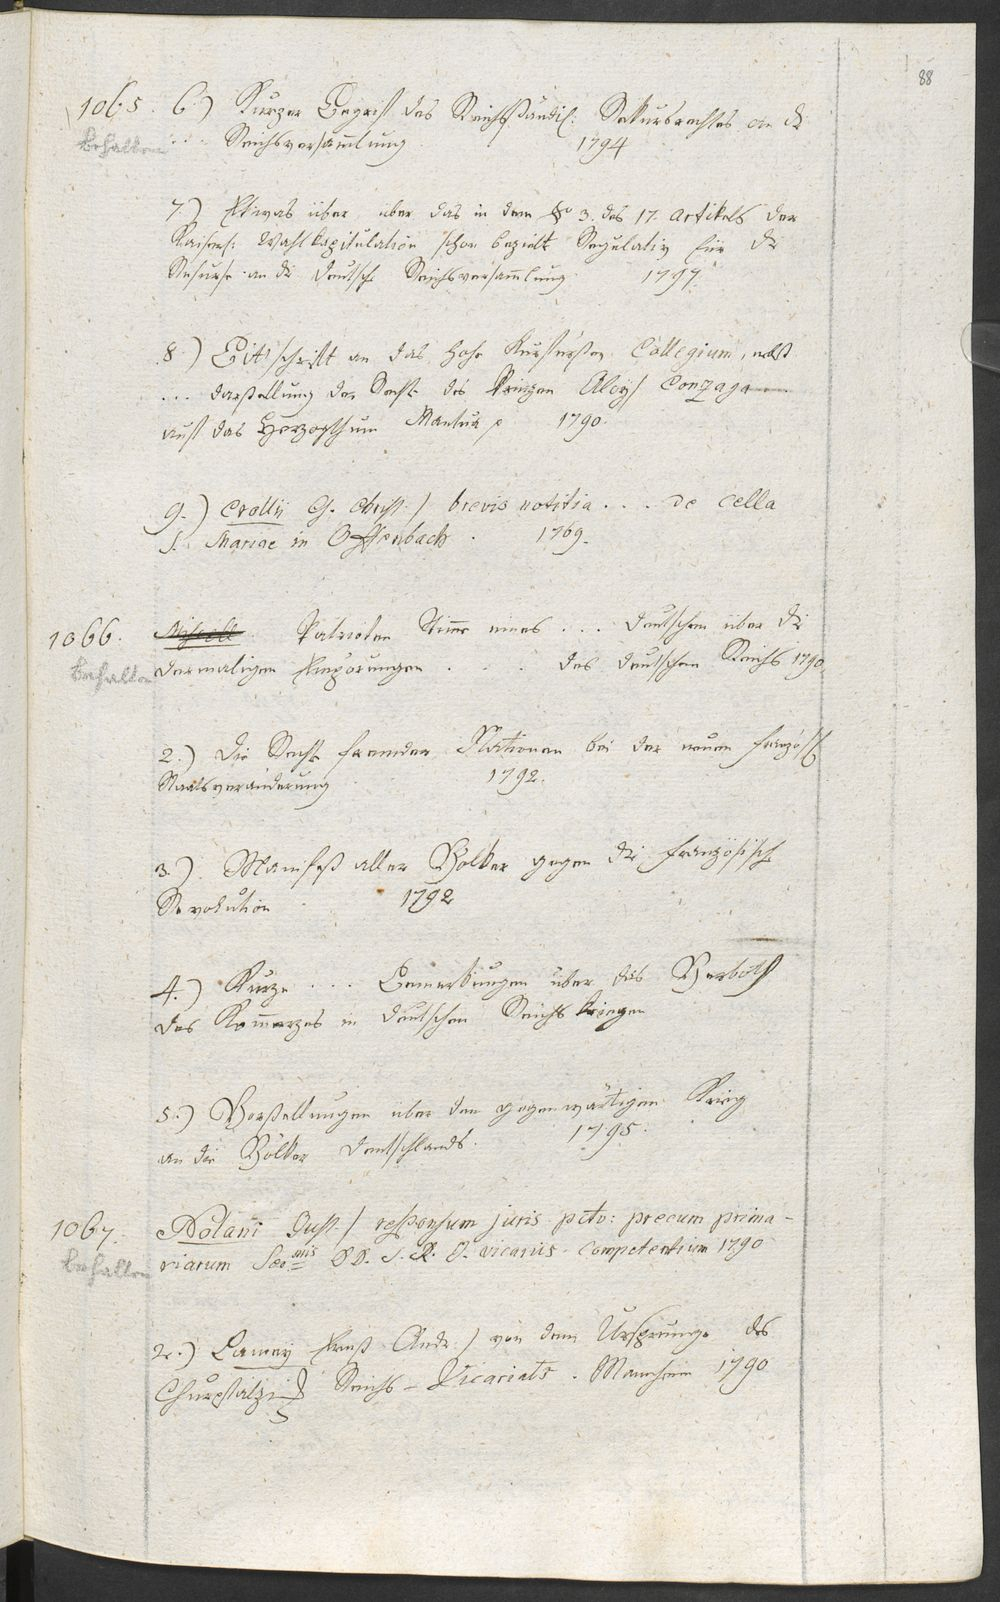 88
1065. 6.) Kurzer Begriff des Reichsständis: Rekursrechtes an die
behalten ... Reichsversam̄lung 1794
7.) Etwas über über das in dem §º 3. des 17. Artikels der
Kaiserl: Wahlkapitulation schon bezielte Regulativ für die
Rekurse an die deutsche Reichsversam̄lung 1797.
8.) Bittschrift an das hohe Kurfürsten Collegium, nebst
... darstellung der Rechte des Prinzen Aloys Gonzaga
auf das Herzogthum Mantua p 1790.
9.) Crollii G. Christ. / brevis notitia .... de cella
S. Mariae in Offenbach. 1769.
1066. Patrioten Stim̄e eines ... deutschen über die
behalten dermaligen Empörungen .... des deutschen Reichs 1790.
2.) Die Rechte fremder Nationen bei der neuen französ.
Staatsveränderung 1792.
3.) Manifest aller Völker gegen die französische
Revolution 1792
4.) Kurze ... Bemerkungen über das Verboth
des Kom̄erzes in deutschen Reichskriegen
5.) Vorstellungen über den gegenwärtigen Krieg
an die Völker deutschlands. 1795.
1067. Nolani Gust. / responsum juris pcto: precum prima-
behalten riarum Seremis DD. S. R. J. vicariis competentium 1790
2.) Lamey Ernst Andr. / von dem Ursprunge des
Churpfalzis. Reichs-Vicariats. Mannheim 1790